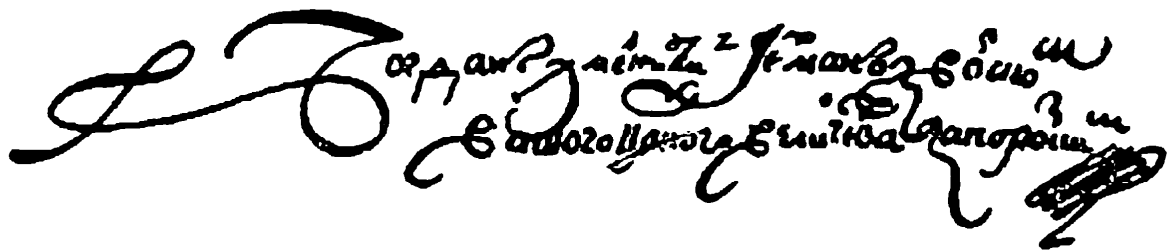 Богданъ Хмелницкии Гетманъ з Воиском
его Црского Величства Запорозким